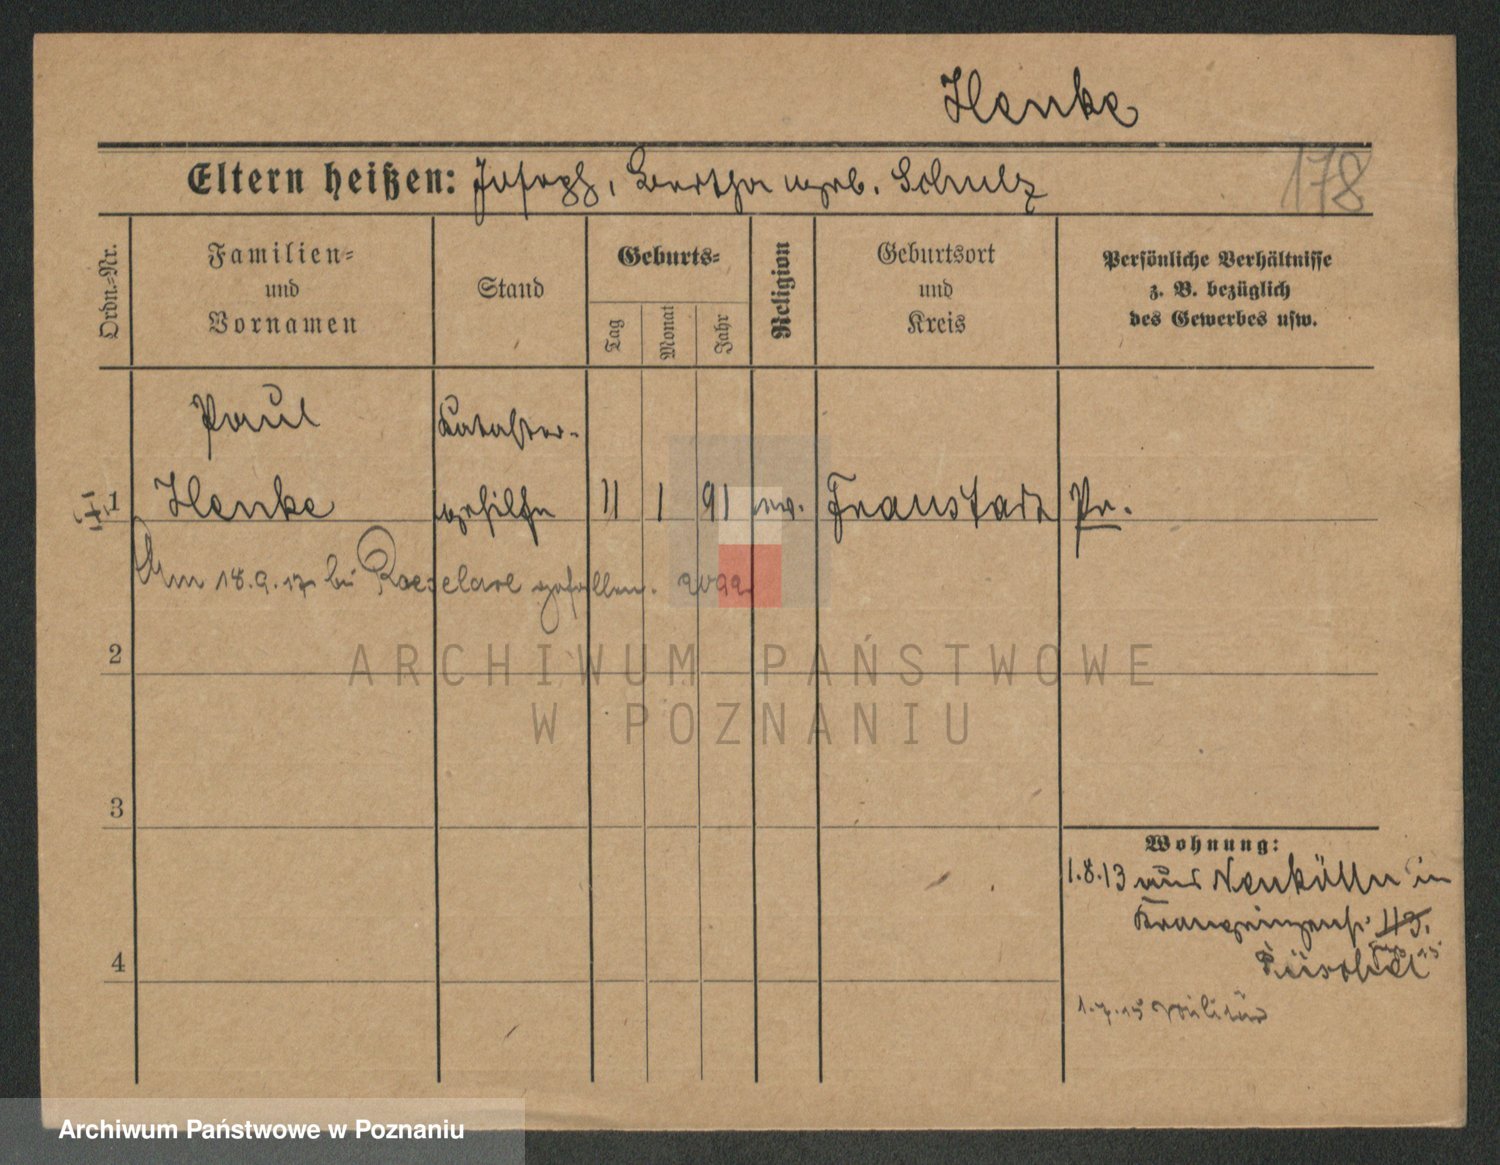 Henke
Eltern heißen: Joseph, Bertha geb. Schulz
178
Ordn.-Nr.
Familien-
und
Vornamen
Stand
Geburts-
Tag
Monat
Jahr
Religion
Geburtsort
und
Kreis
Persönliche Verhältnisse
z. B. bezüglich
des Gewerbes usw.
Paul Kataster-
1 Henke gehilfe 11 1 91 ev. Fraustadt Pr.
Am 18.9.17 bei Roeselare gefallen.
2
ARCHIWUM PAŃSTWOWE
W POZNANIU
3
Wohnung:
1.8.13 aus Neukölln in
4
1.7.15 Militär
Archiwum Państwowe w Poznaniu